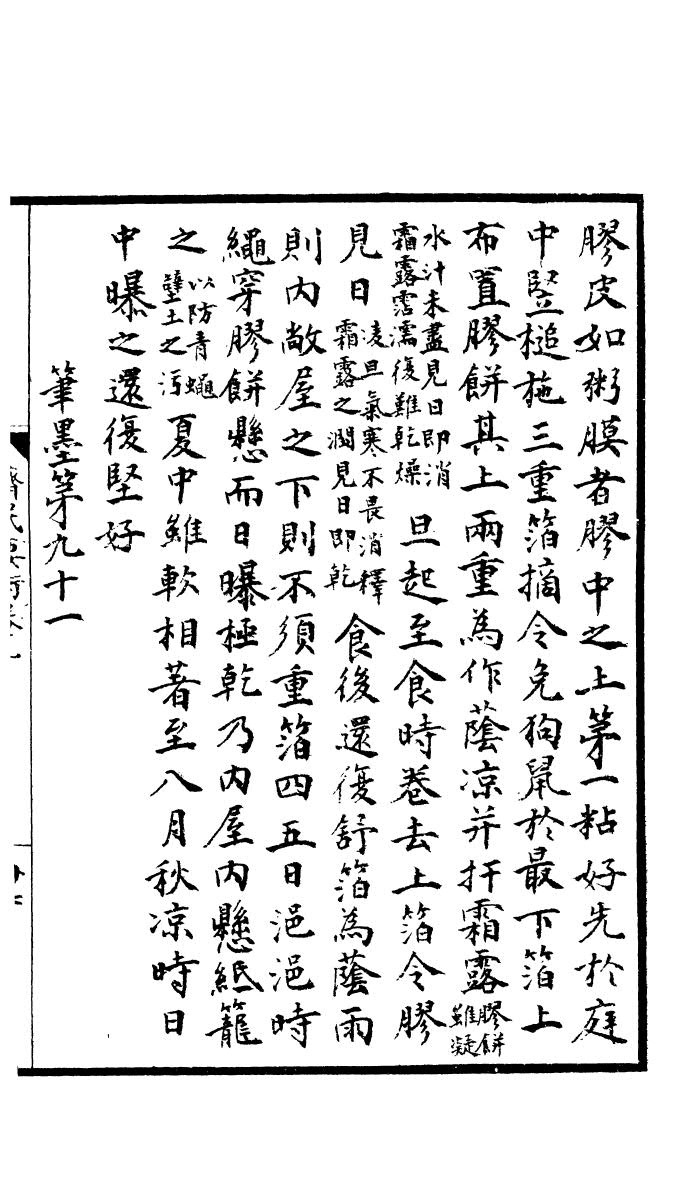 膠皮如粥膜者膠中之上苐一粘好先於庭
中竪槌施三重箔摘令免狗鼠於最下箔上
布置膠餅其上兩重為作蔭凉并扞霜露膠餅雖凝
水汁未盡見日即消霜露霑濡復難乾燥旦起至食時卷去上箔令膠
見日凌旦氣寒不畏消釋霜露之潤見日即乾食後還復舒箔為蔭雨
則内敞屋之下則不須重箔四五日浥浥時
繩穿膠餅懸而日曝極乾乃内屋内懸紙籠
之以防青蠅壁土之汚夏中雖軟相著至八月秋凉時日
中曝之還復堅好
筆墨苐九十一